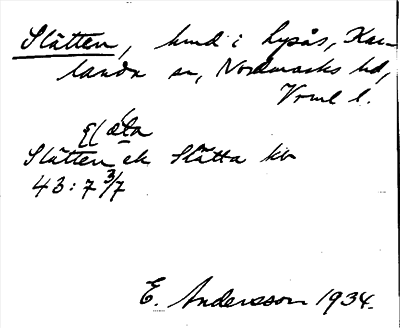 Slätten, hmd i Lysås, Kar-
landa sn, Nordmarks hd,
Vrml l.
slǽta
Slätten ek Slätta kb
43:7 3/7
E. Andersson 1934.